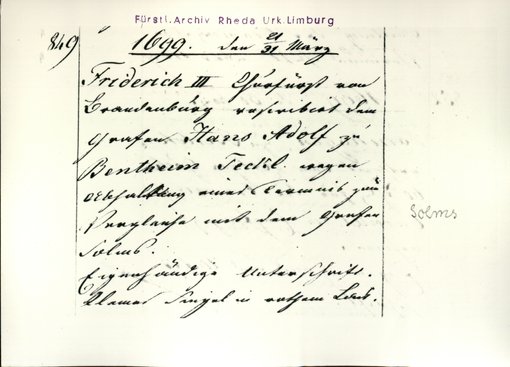 Fürstl. Archiv Rheda Urk. Limburg
849
1699. den 21/31 März
Friderich III Churfürst von
Brandenburg rescribirt dem
Grafen Hans Adolf zu
Bentheim Teckl. wegen
Abhaltung eines Termins zum
Vergleiche mit dem Grafen
Solms.
Solms
Eigenhändige Unterschrift.
kleines Siegel in rothem Lack.